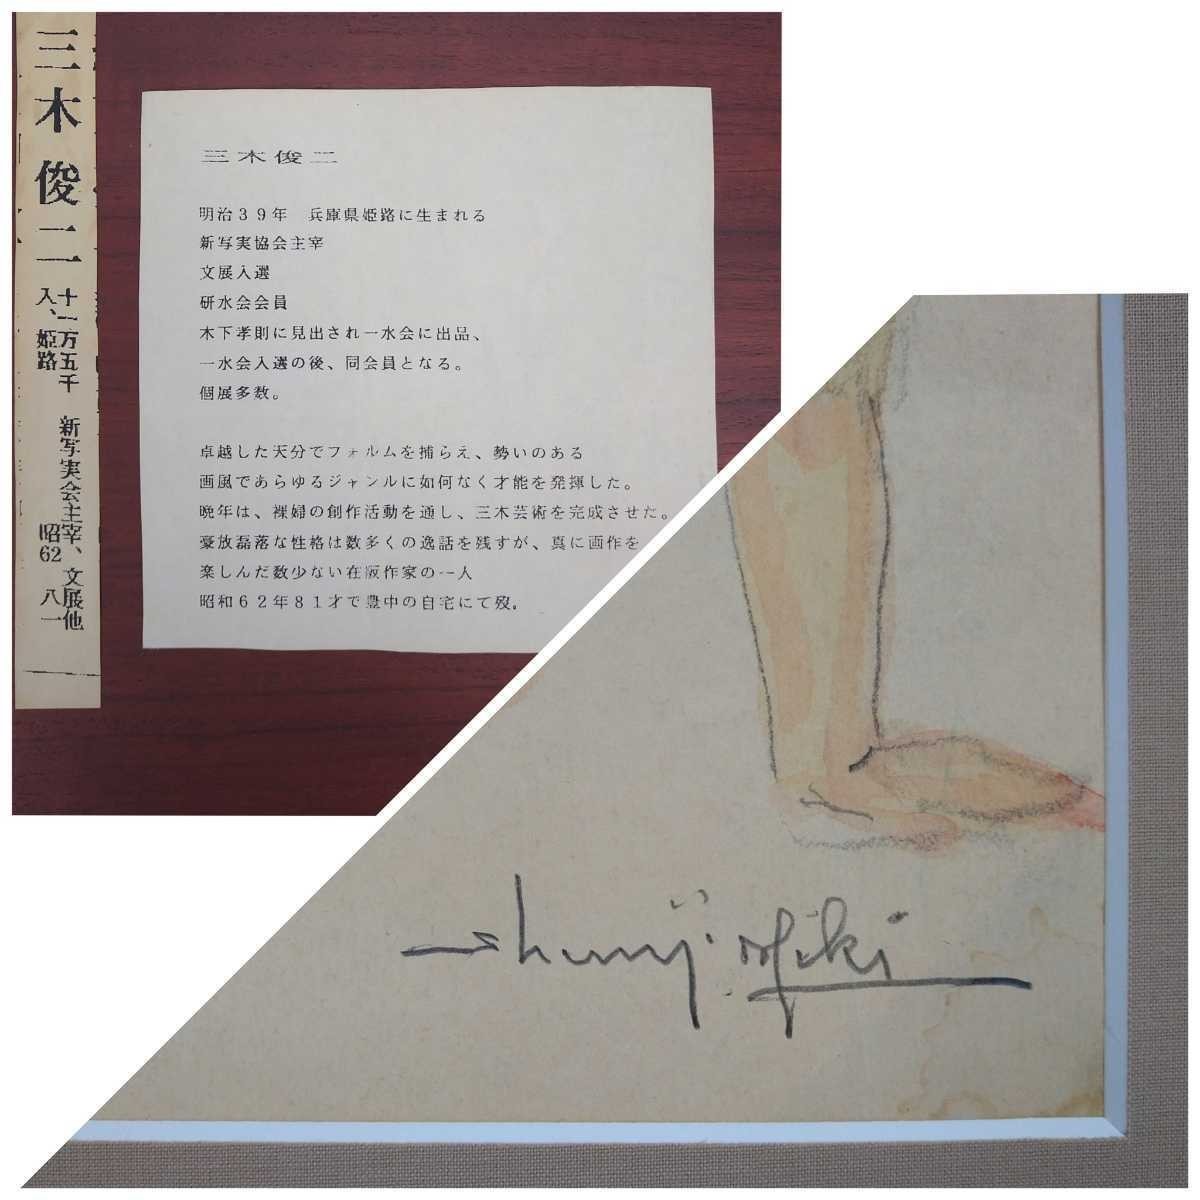 三木俊二
十一万五千 新写実会主宰、文展他
入、姫路 昭62 八一
三木俊二
明治39年 兵庫県姫路に生まれる
新写実協会主宰
文展入選
研水会会員
木下孝則に見出され一水会に出品、
一水会入選の後、同会員となる。
個展多数。
卓越した天分でフォルムを捕らえ、勢いのある
画風であらゆるジャンルに如何なく才能を発揮した。
晩年は、裸婦の創作活動を通し、三木芸術を完成させた。
豪放磊落な性格は数多くの逸話を残すが、真に画作を
楽しんだ数少ない在阪作家の一人
昭和62年81才で豊中の自宅にて歿。
Shunji. Miki